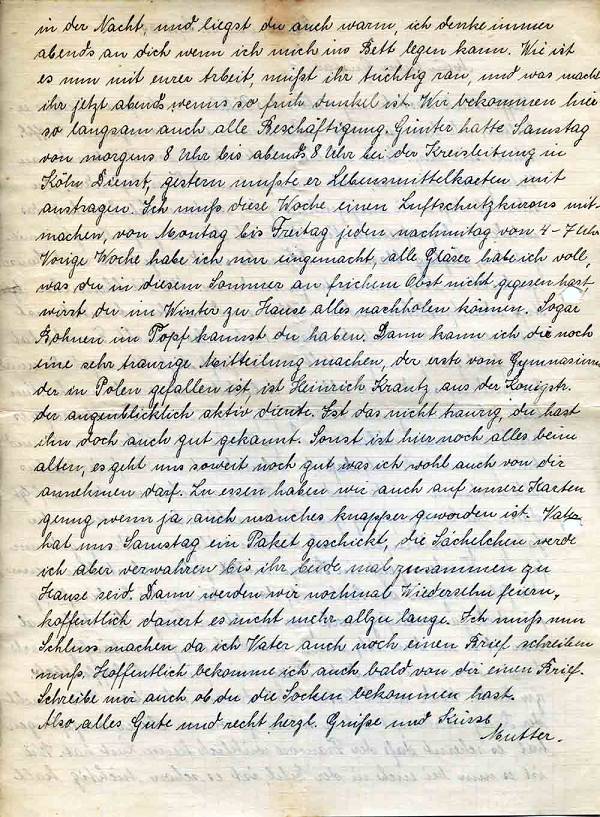 in der Nacht, und liegst du auch warm, ich denke immer
abends an dich wenn ich mich ins Bett legen kann. Wie ist
es nun mit eurer Arbeit, müßt ihr tüchtig ran, und was macht
ihr jetzt abends wenns so früh dunkel ist. Wir bekommen hier
so langsam auch alle Beschäftigung. Günter hatte Samstag
von morgens 8 Uhr bis abends 8 Uhr bei der Kreisleitung in
Köln Dienst, gestern mußte er Lebensmittelkarten mit
austragen. Ich muß diese Woche einen Luftschutzkursus mit-
machen, von Montag bis Freitag jeden nachmitag von 4-7 Uhr.
Vorige Woche habe ich nur eingemacht, alle Gläser habe ich voll,
was du in diesem Sommer an frichem Obst nicht gegesen hast,
wirst du im Winter zu Hause alles nachholen können. Sogar
Bohnen im Topf kannst du haben. Dann kann ich dir noch
eine sehr traurige Mitteilung machen, der erste vom Gymnasium
der in Polen gefallen ist, ist Heinrich Krantz aus der Königstr.
der augenblicklich aktiv diente. Ist das nicht traurig, du hast
ihn doch auch gut gekannt. Sonst ist hier noch alles beim
alten, es geht uns soweit noch gut was ich wohl auch von dir
annehmen darf. Zu essen haben wir auch auf unsere Karten
genug wenn ja auch manches knapper geworden ist. Vater
hat uns Samstag ein Paket geschickt, die Sächelchen werde
ich aber verwahren bis ihr beide mal zusammen zu
Hause seid. Dann werden wir nochmal Wiedersehn feiern,
hoffentlich dauert es nicht mehr allzu lange. Ich muß nun
Schluss machen da ich Vater auch noch einen Brief schreiben
muß. Hoffentlich bekomme ich auch bald von dir einen Brief.
Schreibe mir auch ob du die Socken bekommen hast.
Also alles Gute und recht herzl. Grüße und Küsse
Mutter.